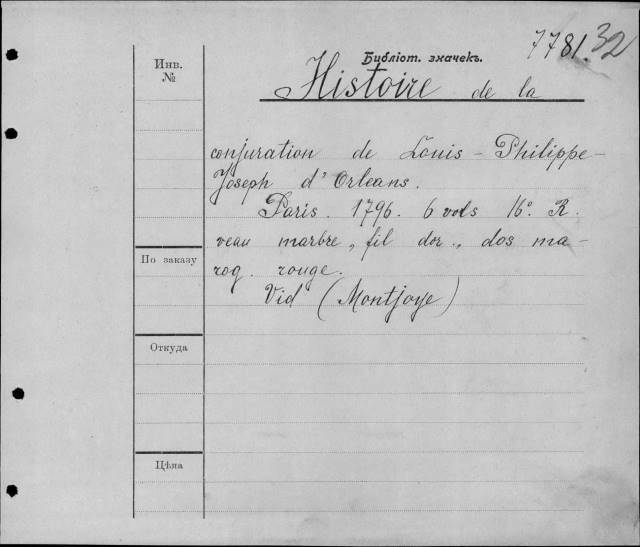 7781.32
Инв.
№
Библіот. значекъ.
Histoire de la
conjuration de Louis-Philippe-
Joseph d'Orleans.
Paris. 1796. 6 vols 16°. R.
veau marbre, fil dor., dos ma-
roq. rouge.
Vid (Montjoye)
По заказу
Откуда
Цѣна